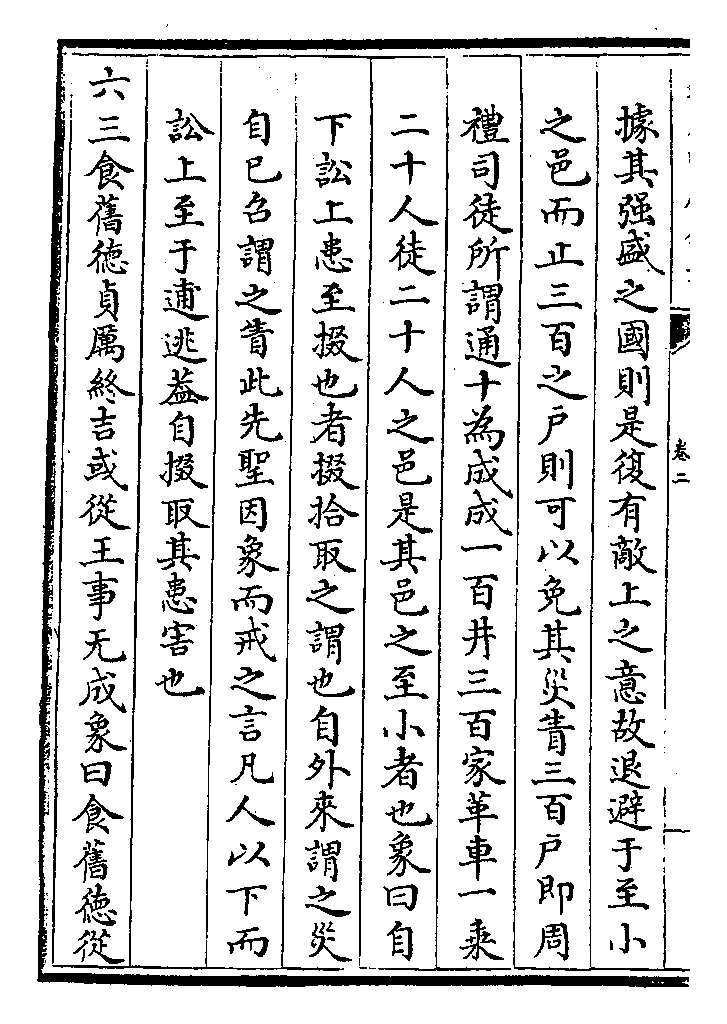 卷二
據其强盛之國則是復有敵上之意故退避于至小
之邑而止三百之户則可以免其災眚三百户即周
禮司徒所謂通十為成成一百井三百家革車一乘
二十人徒二十人之邑是其邑之至小者也象曰自
下訟上患至掇也者掇拾取之謂也自外來謂之災
自已召謂之眚此先聖因象而戒之言凡人以下而
訟上至于逋逃葢自掇取其患害也
六三食舊徳貞厲終吉或從王事无成象曰食舊徳從